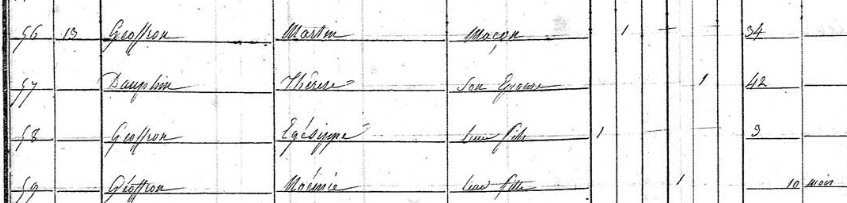 56 13 Geoffron Martin Maçon 1 34
57 Dauphin Thérèse Son Epouse 1 42
58 Geoffron Egésippe leur fils 1 9
59 Géoffron Noémie leur fille 1 10 mois